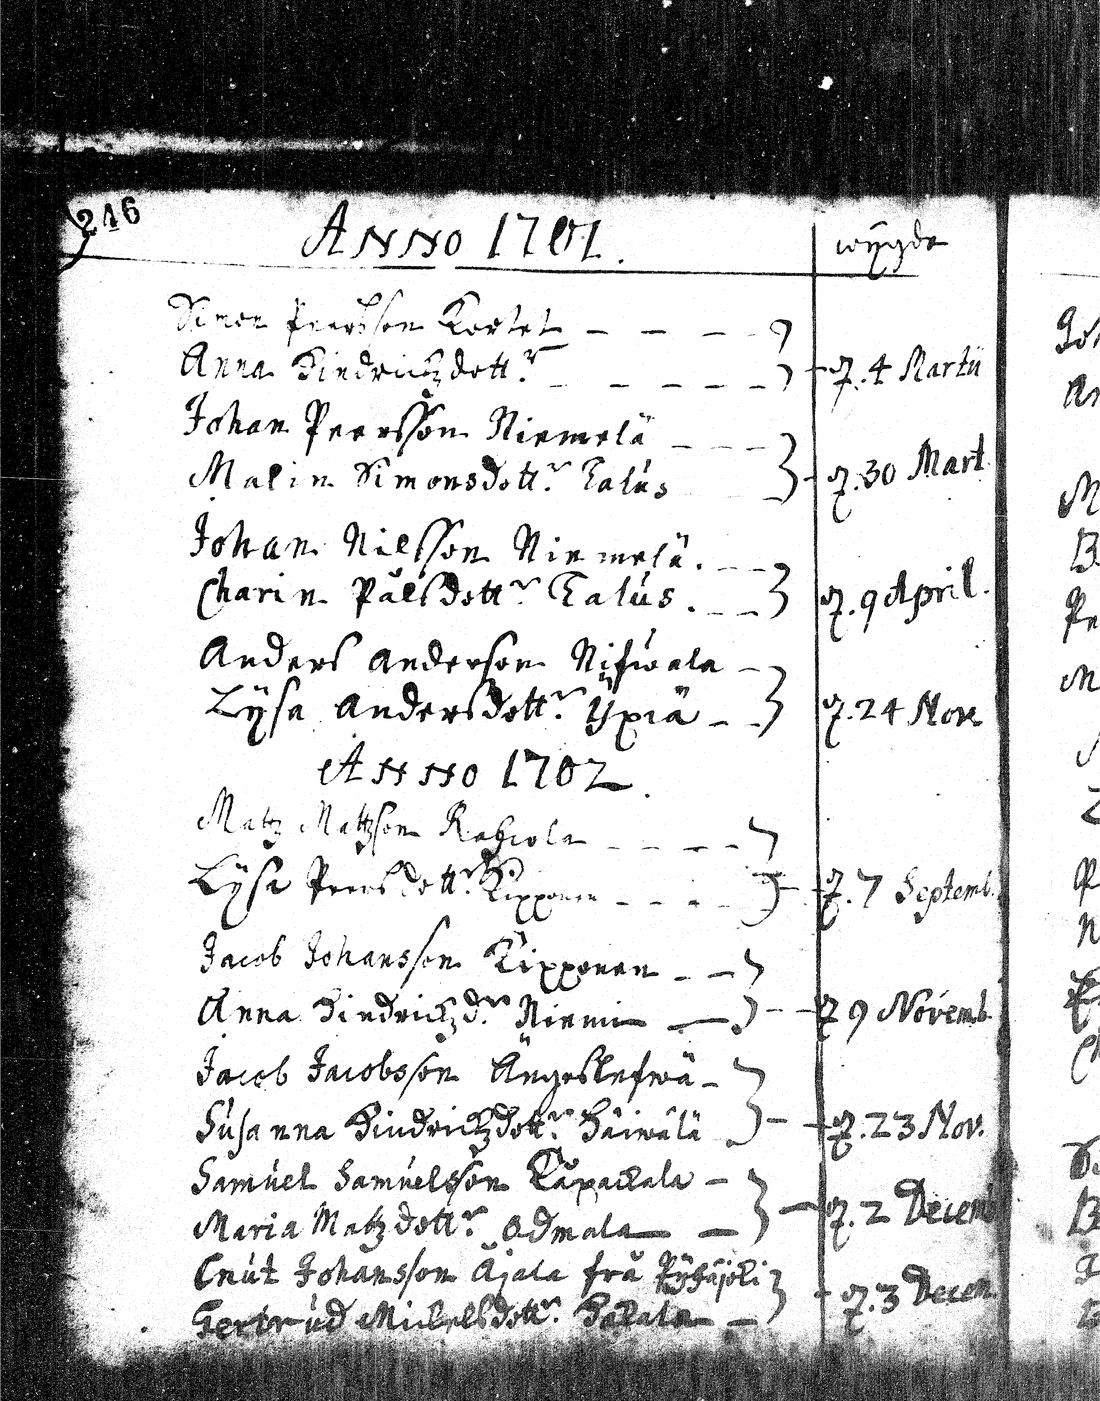 246
Anno 1701.
wijgde
Simon Peersson Kortet
Anna Hindrichzdott.r d. 4 Martii
Johan Peersson Niemelä
Malin Simonsdott.r Talus d. 30 Mart.
Johan Nilsson Niemelä.
Charin Pålsdott.r Talus. d. 9 April.
Anders Anderson Nifwala
Lÿsa Andersdott.r Ypiä d. 24 Nov.
Anno 1702.
Matz Mattzson Rahiola
Lÿsa Peersdott.r Kipponen d. 7 Septemb.
Jacob Johansson Kipponen
Anna Hindrichzd.r Niemi d 9 Novemb.
Jacob Jacobsson Ängeslefwä
Susanna Hindrichzdott.r Haiwälä d. 23 Nov.
Samuel Samuelsson
Maria Matzdott.r Odmala d. 2 Decemb
Cnut Johansson Äjälä frå Pyhäjoki
Gertrud Michelsdott.r d. 3 Decem.